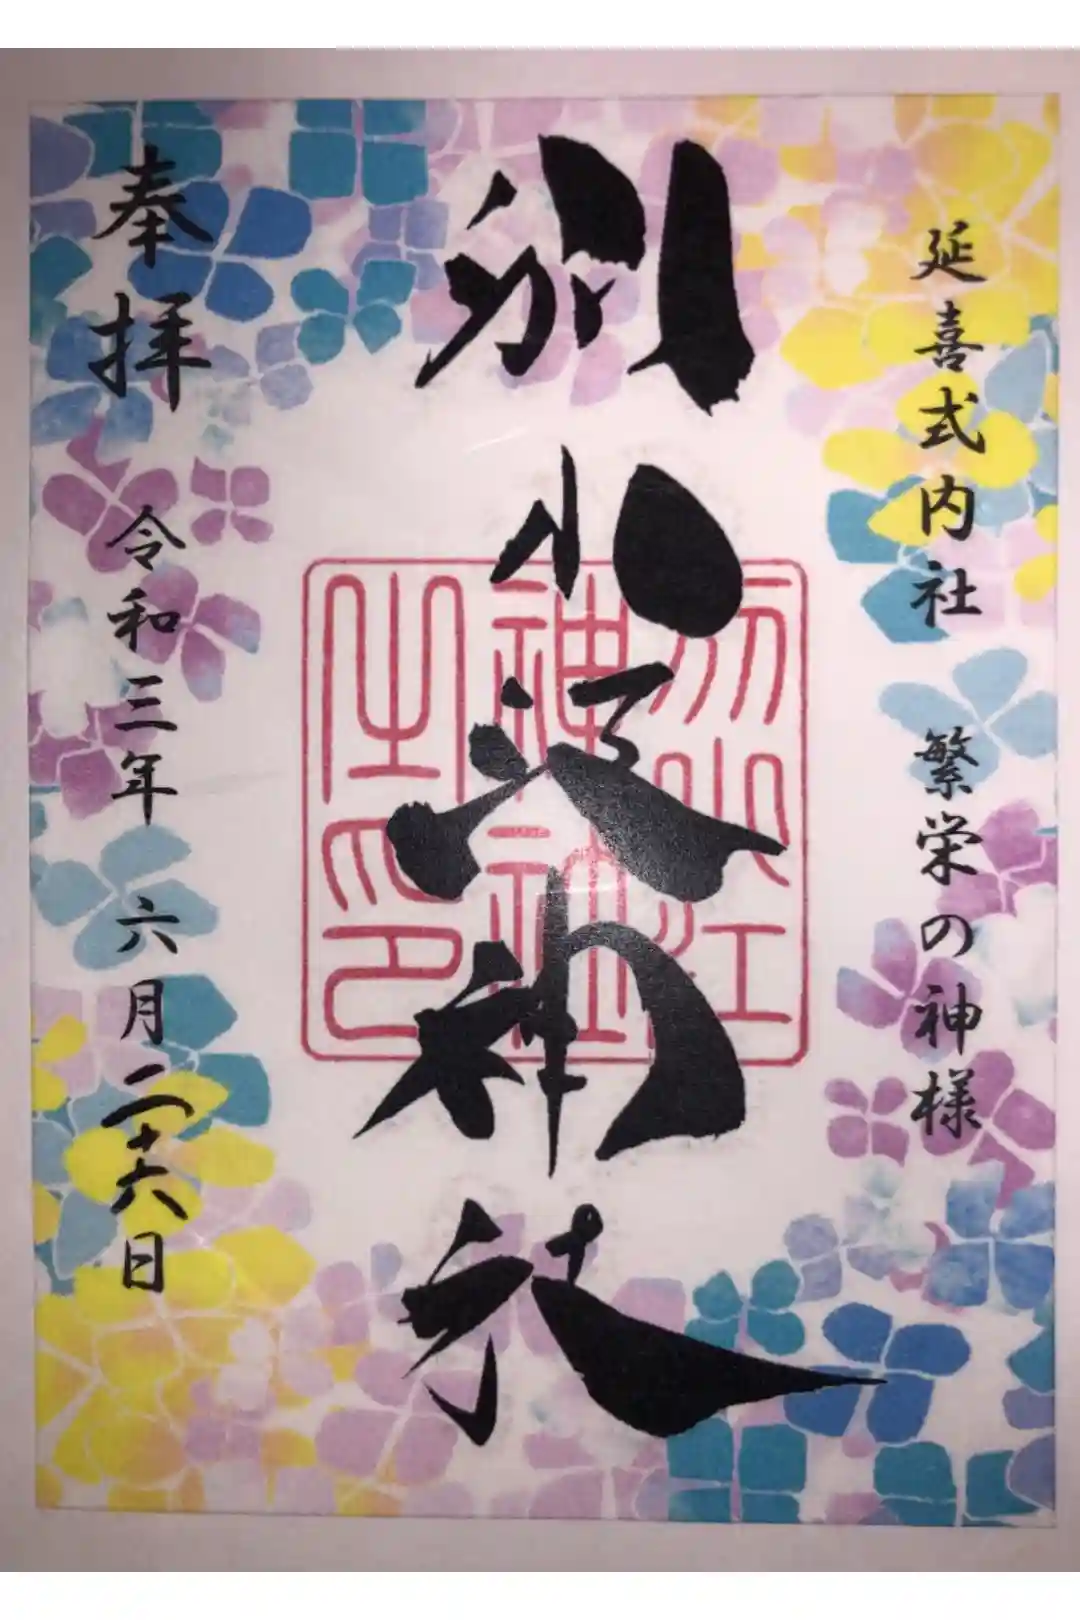 延喜式内社 繁栄の神様
別小江神社
別小江
神社
之印
奉拝 令和三年 六月二十六日